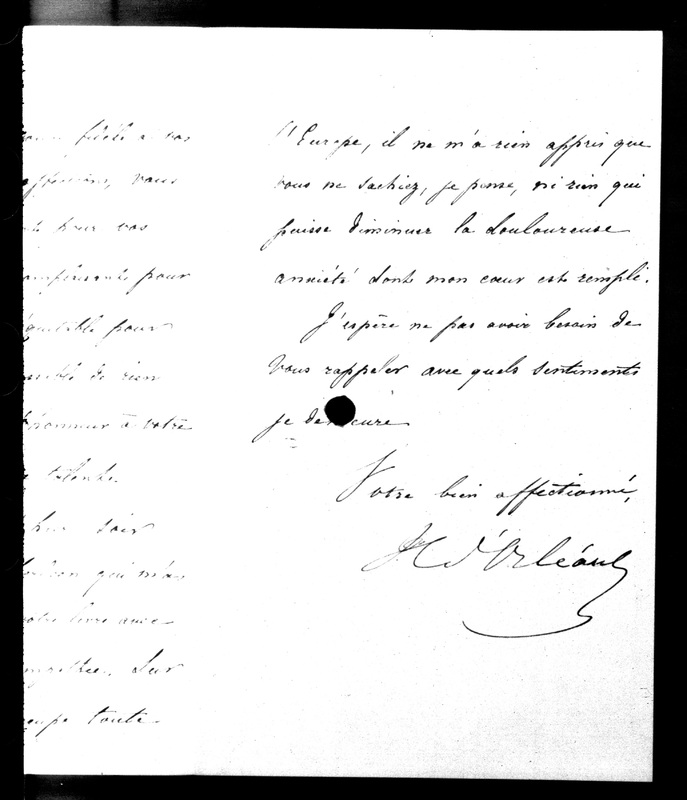 fidèle à vos
vous
pour vos
pour
pour
de rien
à votre
soir
qui m'a
livre avec
Sur
toute
l'Europe, il ne m'a rien appris que
vous ne sachiez, je pense, ni rien qui
puisse diminuer la douloureuse
anxiété dont mon cœur est rempli.
J'espère ne pas avoir besoin de
vous rappeler avec quels sentiments
je demeure
Votre bien affectionné,
H d'Orléans